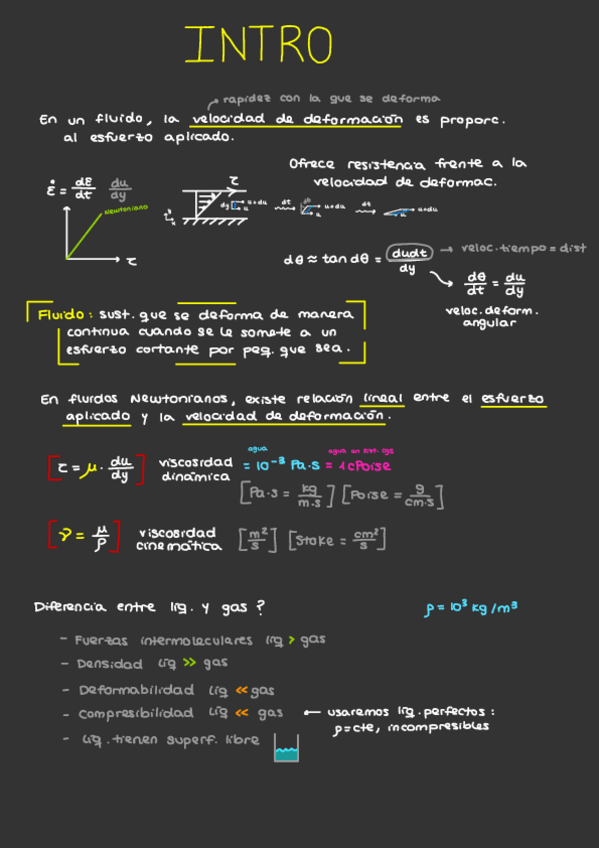 INTRO
rapidez con la que se deforma
En un fluido, la velocidad de deformación es proporc.
al esfuerzo aplicado.
Ofrece resistencia frente a la
velocidad de deformac.
ε̇ = dε/dt du/dy
Newtoniano
τ
τ
dy u+du
u
dt
u+du
u
dt
u+du
dθ ≈ tan dθ = dudt/dy → veloc.tiempo = dist
dθ/dt = du/dy
veloc.deform.
angular
Fluido: sust. que se deforma de manera
continua cuando se le somete a un
esfuerzo cortante por peq. que sea.
En fluidos Newtonianos, existe relación lineal entre el esfuerzo
aplicado y la velocidad de deformación.
agua agua en sist. cgs
[τ = μ · du/dy] viscosidad dinámica = 10⁻³ Pa·s = 1cPoise
[Pa·s = kg/m·s] [Poise = g/cm·s]
[ν = μ/ρ] viscosidad cinemática [m²/s] [Stoke = cm²/s]
Diferencia entre líq. y gas? ρ = 10³ kg/m³
- Fuerzas intermoleculares líq > gas
- Densidad líq >> gas
- Deformabilidad líq << gas
- Compresibilidad líq << gas ← usaremos líq. perfectos:
ρ=cte, incompresibles
- Líq. tienen superf. libre